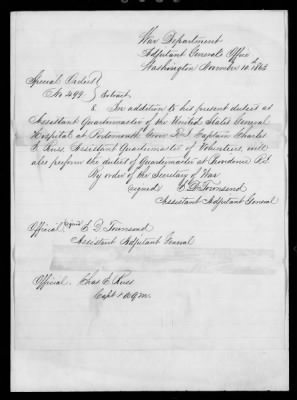 War Department
Adjutant General's Office
Washington November 10th 1864
Special Orders
No. 499 Extract
8 In addition to his present duties as
Assistant Quartermaster of the United States General
Hospital at Portsmouth Grove R.I. Captain Charles
Assistant Quartermaster of Volunteers, will
also perform the duties of Quartermaster at Providence R.I.
By order of the Secretary of War
signed E D Townsend
Assistant Adjutant General
Official signed E D Townsend
Assistant Adjutant General
Official
Capt & AQM.